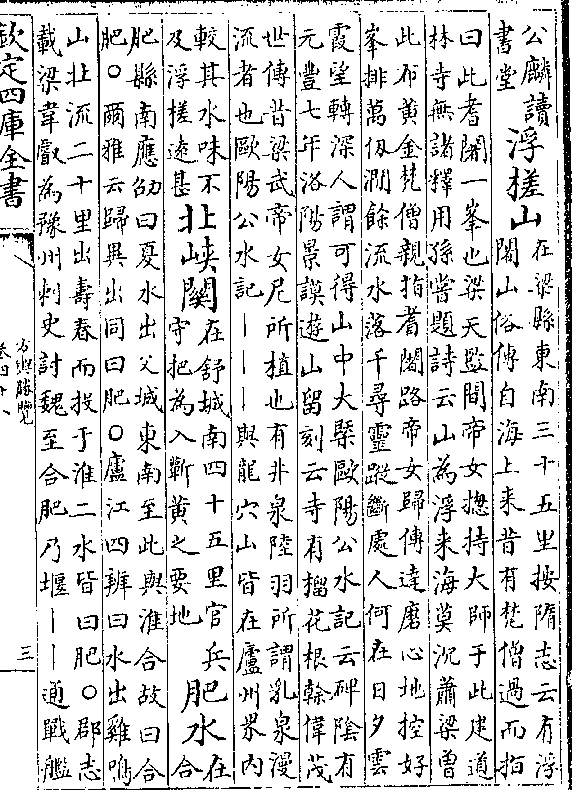 公麟讀
書堂
浮槎山
在梁縣東南三十五里按隋志云有浮
闍山俗傳自海上来昔有梵僧過而指
曰此耆闍一峯也梁天監間帝女揔持大師于此建道
林寺無諸釋用孫嘗題詩云山為浮来海莫沉蕭梁曾
此布黃金梵僧親指耆闍路帝女歸傳達磨心地控好
峯排萬仭澗餘流水落千尋靈蹤斷處人何在日夕雲
霞望轉深人謂可得山中大槩歐陽公水記云碑陰有
元豐七年洛陽景謨遊山留刻云寺有榴花根榦偉茂
世傳昔梁武帝女尼所植也有井泉陸羽所謂乳泉漫
流者也歐陽公水記｜｜｜與龍穴山皆在廬州界内
較其水味不
及浮槎逺甚
北峽關
在舒城南四十五里官兵
守把為入蘄黃之要地
肥水
在
合
肥縣南應劭曰夏水出父城東南至此與淮合故曰合
肥○爾雅云歸異出同曰肥○廬江四辨曰水出雞鳴
山北流二十里出壽春而投于淮二水皆曰肥○郡志
載梁韋叡為豫州刺史討魏至合肥乃堰｜｜通戰艦
欽定四庫全書
方輿勝覽
卷四十八
三